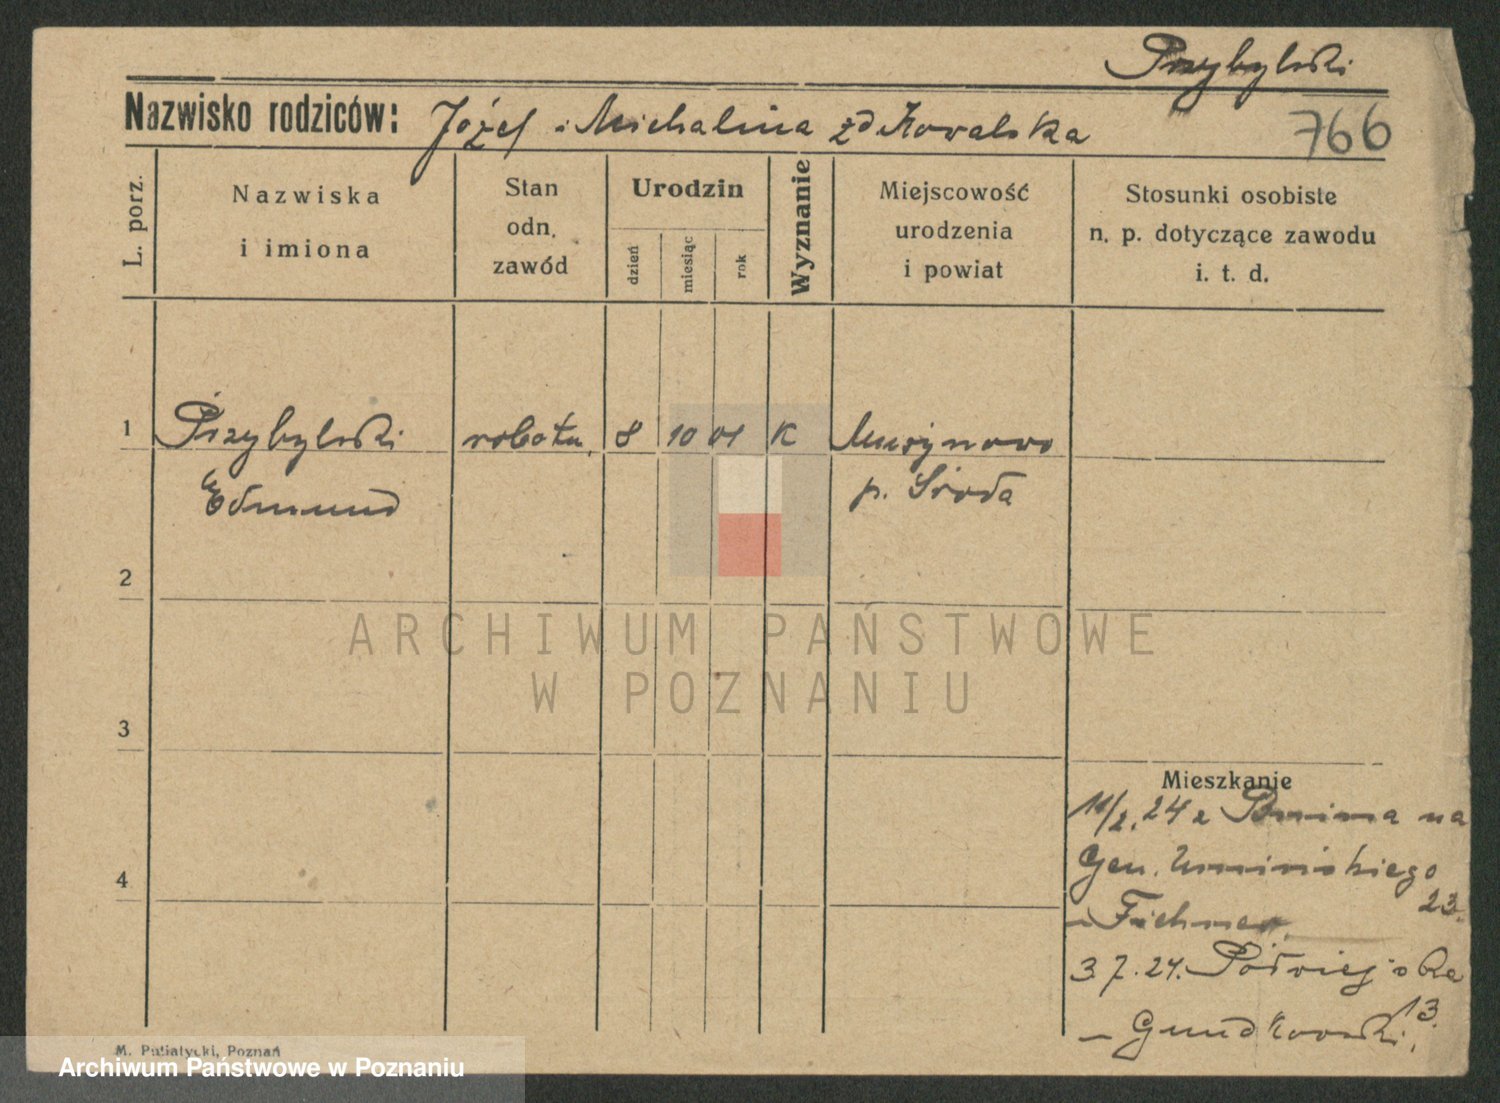 Przybylski
Nazwisko rodziców: Józef i Michalina zd Kowalska
766
L. porz.
Nazwiska
i imiona
Stan
odn.
zawód
Urodzin
dzień
miesiąc
rok
Wyznanie
Miejscowość
urodzenia
i powiat
Stosunki osobiste
n. p. dotyczące zawodu
i. t. d.
1 Przybylski robotn. 8 10 01 K Murzynowo
Edmund p. Środa
2
3
4
Mieszkanie
11/2.24 z na
Gen. Umińskiego
23.
3.7.24.
13.
M. Putiatycki, Poznań
ARCHIWUM PAŃSTWOWE
W POZNANIU
Archiwum Państwowe w Poznaniu